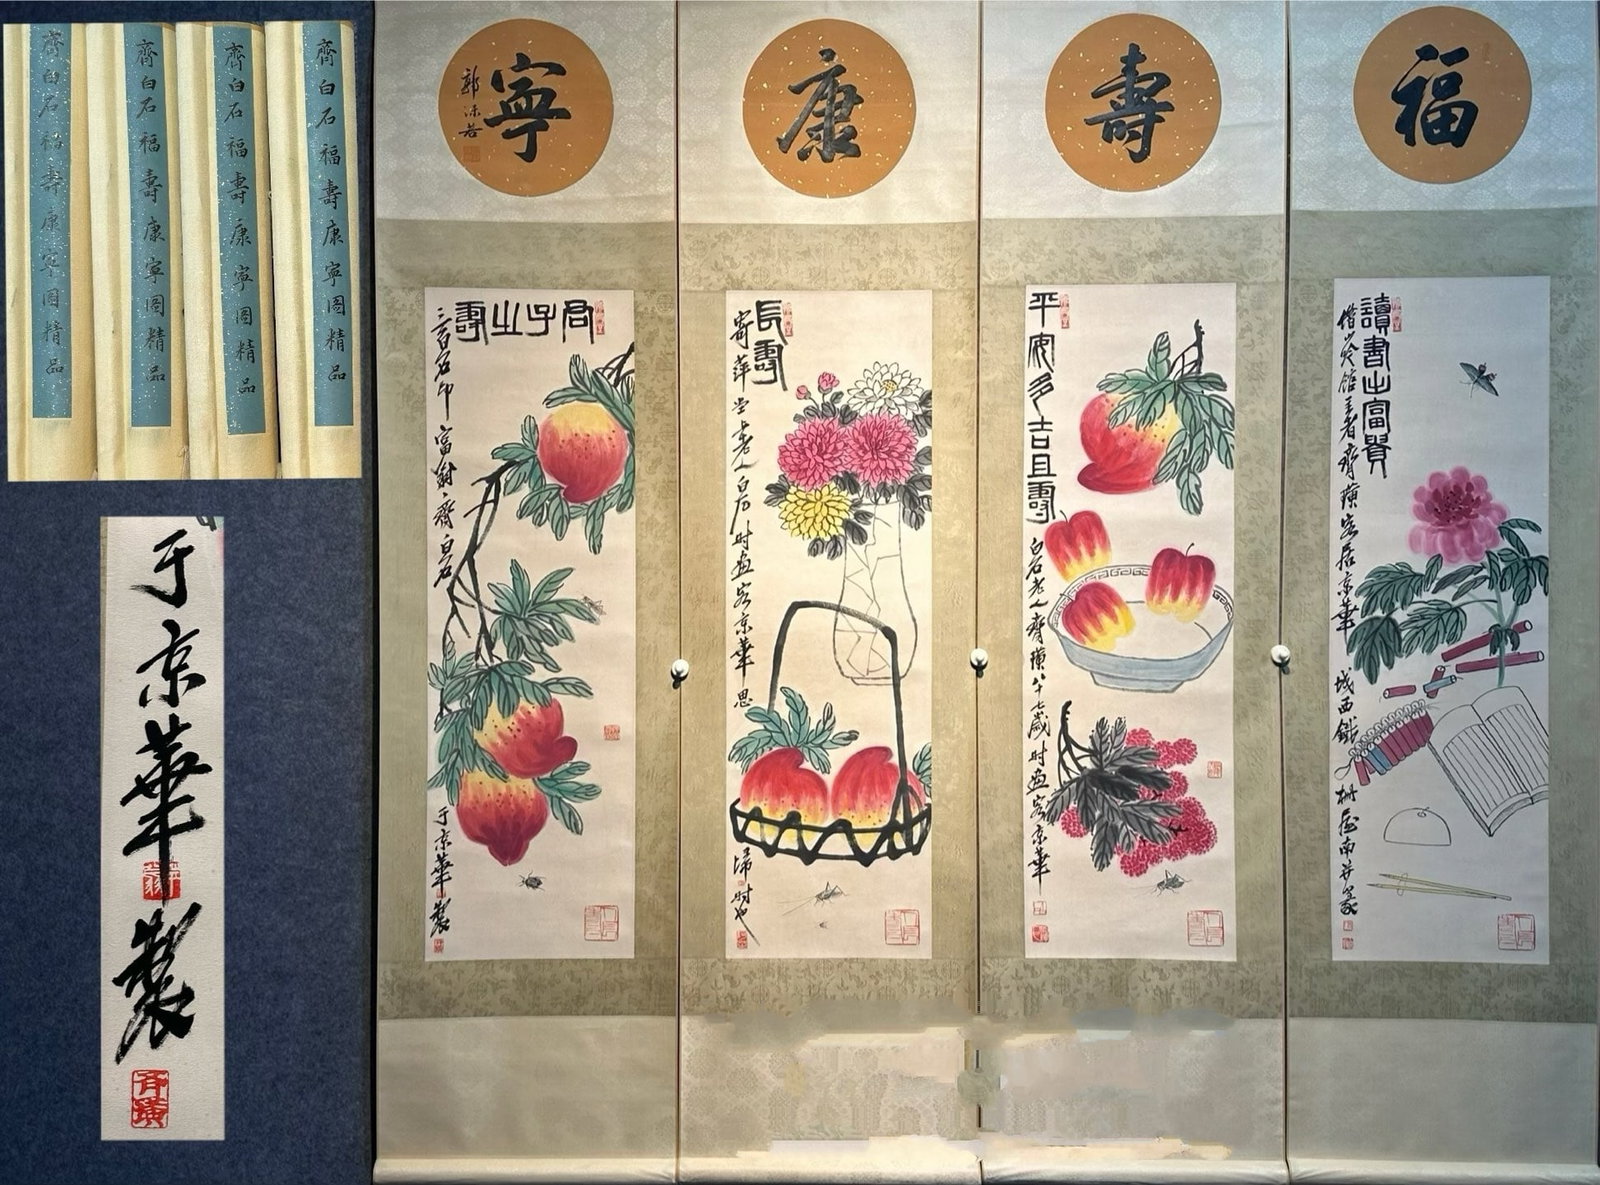 齊白石福壽康寧圖精品
齊白石福壽康寧圖精品
齊白石福壽康寧圖精品
齊白石福壽康寧圖精品
于京華製
福
壽
康
寧
郭沫若
讀書之富貴
借山吟館主者齊璜客居京華城西鐵柵屋南并篆
平安多吉且壽
白石老人齊璜八十七歲時畫客京華
長壽
寄萍堂老人白石時畫客京華思歸時也
君子之壽
三百石印富翁齊白石
于京華製